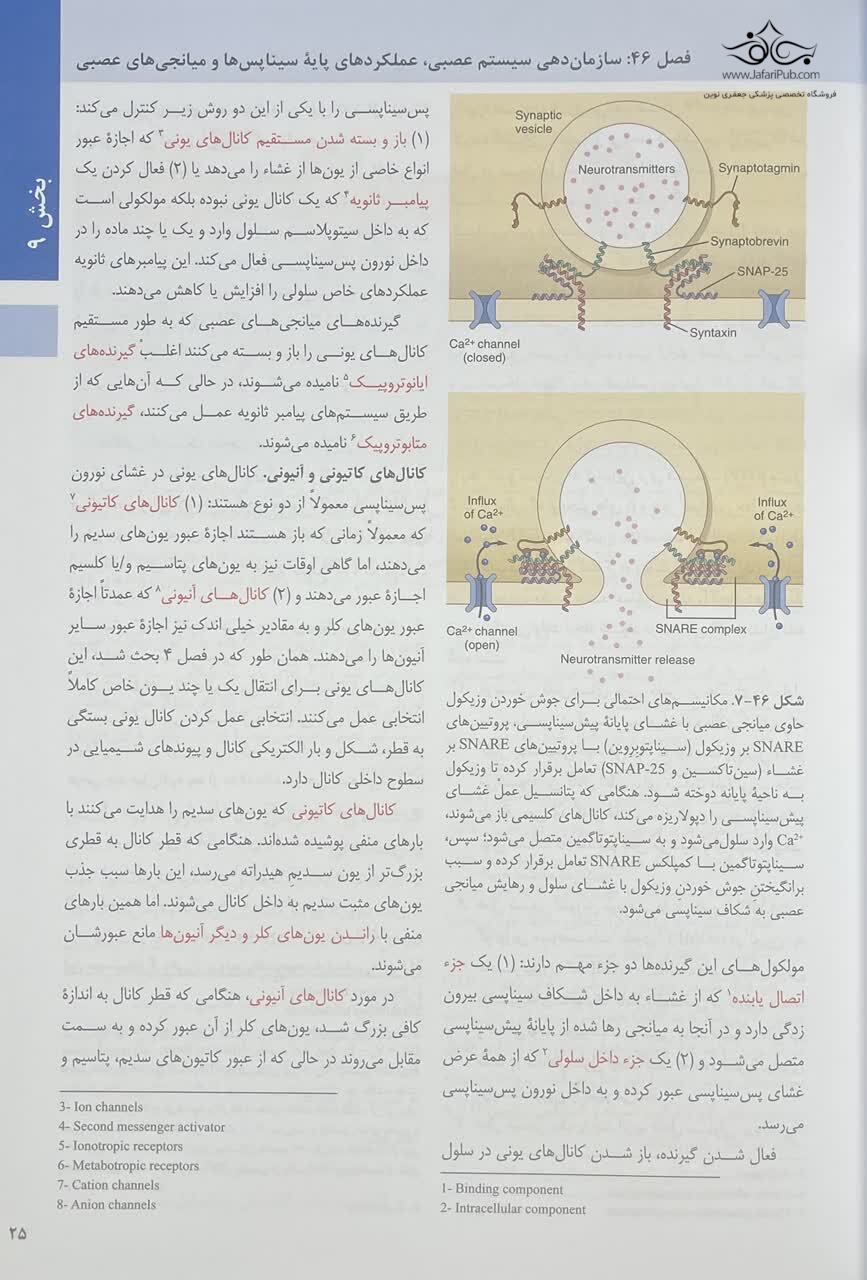 بنافه
www.JafariPub.com
فروشگاه تخصصی پزشکی جعفری نوین
فصل ۴۶: سازمان‌دهی سیستم عصبی، عملکردهای پایهٔ سیناپس‌ها و میانجی‌های عصبی
بخش ۹
Synaptic
vesicle
Neurotransmitters
Synaptotagmin
Synaptobrevin
SNAP-25
Syntaxin
Ca²⁺ channel
(closed)
Influx
of Ca²⁺
Influx
of Ca²⁺
Ca²⁺ channel
(open)
SNARE complex
Neurotransmitter release
شکل ۴۶-۷. مکانیسم‌های احتمالی برای جوش خوردن وزیکول
حاوی میانجی عصبی با غشای پایانهٔ پیش‌سیناپسی. پروتیین‌های
SNARE بر وزیکول (سیناپتوبروین) با پروتیین‌های SNARE بر
غشاء (سین‌تاکسین و SNAP-25) تعامل برقرار کرده تا وزیکول
به ناحیهٔ پایانه دوخته شود. هنگامی که پتانسیل عملْ غشای
پیش‌سیناپسی را دپولاریزه می‌کند، کانال‌های کلسیمی باز می‌شوند،
Ca²⁺ وارد سلول‌می‌شود و به سیناپتوتاگمین متصل می‌شود؛ سپس،
سیناپتوتاگمین با کمپلکس SNARE تعامل برقرار کرده و سبب
برانگیختنِ جوش خوردنِ وزیکول با غشای سلول و رهایش میانجی
عصبی به شکاف سیناپسی می‌شود.
مولکول‌های این گیرنده‌ها دو جزء مهم دارند: (۱) یک جزء
اتصال یابنده¹ که از غشاء به داخل شکاف سیناپسی بیرون
زدگی دارد و در آنجا به میانجی رها شده از پایانهٔ پیش‌سیناپسی
متصل می‌شود و (۲) یک جزء داخل سلولی² که از همهٔ عرض
غشای پس‌سیناپسی عبور کرده و به داخل نورون پس‌سیناپسی
می‌رسد.
فعال شدن گیرنده، باز شدن کانال‌های یونی در سلول
1- Binding component
2- Intracellular component
پس‌سیناپسی را با یکی از این دو روش زیر کنترل می‌کند:
(۱) باز و بسته شدن مستقیم کانال‌های یونی³ که اجازهٔ عبور
انواع خاصی از یون‌ها از غشاء را می‌دهد یا (۲) فعال کردن یک
پیامبر ثانویه⁴ که یک کانال یونی نبوده بلکه مولکولی است
که به داخل سیتوپلاسم سلول وارد و یک یا چند ماده را در
داخل نورون پس‌سیناپسی فعال می‌کند. این پیامبرهای ثانویه
عملکردهای خاص سلولی را افزایش یا کاهش می‌دهند.
گیرنده‌های میانجی‌های عصبی که به طور مستقیم
کانال‌های یونی را باز و بسته می‌کنند اغلبْ گیرنده‌های
ایانوتروپیک⁵ نامیده می‌شوند، در حالی که آن‌هایی که از
طریق سیستم‌های پیامبر ثانویه عمل می‌کنند، گیرنده‌های
متابوتروپیک⁶ نامیده می‌شوند.
کانال‌های کاتیونی و آنیونی. کانال‌های یونی در غشای نورون
پس‌سیناپسی معمولاً از دو نوع هستند: (۱) کانال‌های کاتیونی⁷
که معمولاً زمانی که باز هستند اجازهٔ عبور یون‌های سدیم را
می‌دهند، اما گاهی اوقات نیز به یون‌های پتاسیم و/یا کلسیم
اجازه عبور می‌دهند و (۲) کانال‌های آنیونی⁸ که عمدتاً اجازهٔ
عبور یون‌های کلر و به مقادیر خیلی اندک نیز اجازهٔ عبور سایر
آنیون‌ها را می‌دهند. همان طور که در فصل ۴ بحث شد، این
کانال‌های یونی برای انتقال یک یا چند یون خاص کاملاً
انتخابی عمل می‌کنند. انتخابی عمل کردن کانال یونی بستگی
به قطر، شکل و بار الکتریکی کانال و پیوندهای شیمیایی در
سطوح داخلی کانال دارد.
کانال‌های کاتیونی که یون‌های سدیم را هدایت می‌کنند با
بارهای منفی پوشیده شده‌اند. هنگامی که قطر کانال به قطری
بزرگ‌تر از یون سدیمِ هیدراته می‌رسد، این بارها سبب جذب
یون‌های مثبت سدیم به داخل کانال می‌شوند. اما همین بارهای
منفی با راندن یون‌های کلر و دیگر آنیون‌ها مانع عبورشان
می‌شوند.
در مورد کانال‌های آنیونی، هنگامی که قطر کانال به اندازهٔ
کافی بزرگ شد، یون‌های کلر از آن عبور کرده و به سمت
مقابل می‌روند در حالی که از عبور کاتیون‌های سدیم، پتاسیم و
3- Ion channels
4- Second messenger activator
5- Ionotropic receptors
6- Metabotropic receptors
7- Cation channels
8- Anion channels
۲۵